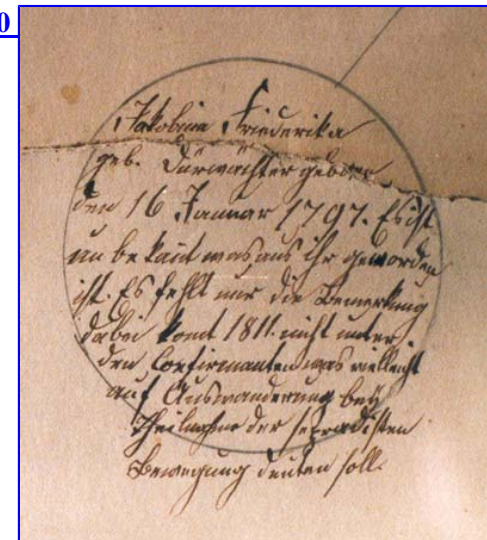 0
Jakobine Friederika
geb. Dürwächter geboren
den 16 Januar 1797. Es ist
un be kant was aus ihr geworden
ist. Es fehlt nur die Bemerkung
dabei komt 1811. nicht unter
den Confirmanten was vielleicht
auf Auswanderung bey
Theilnahme der sepradisten
Bewegung deuten soll.